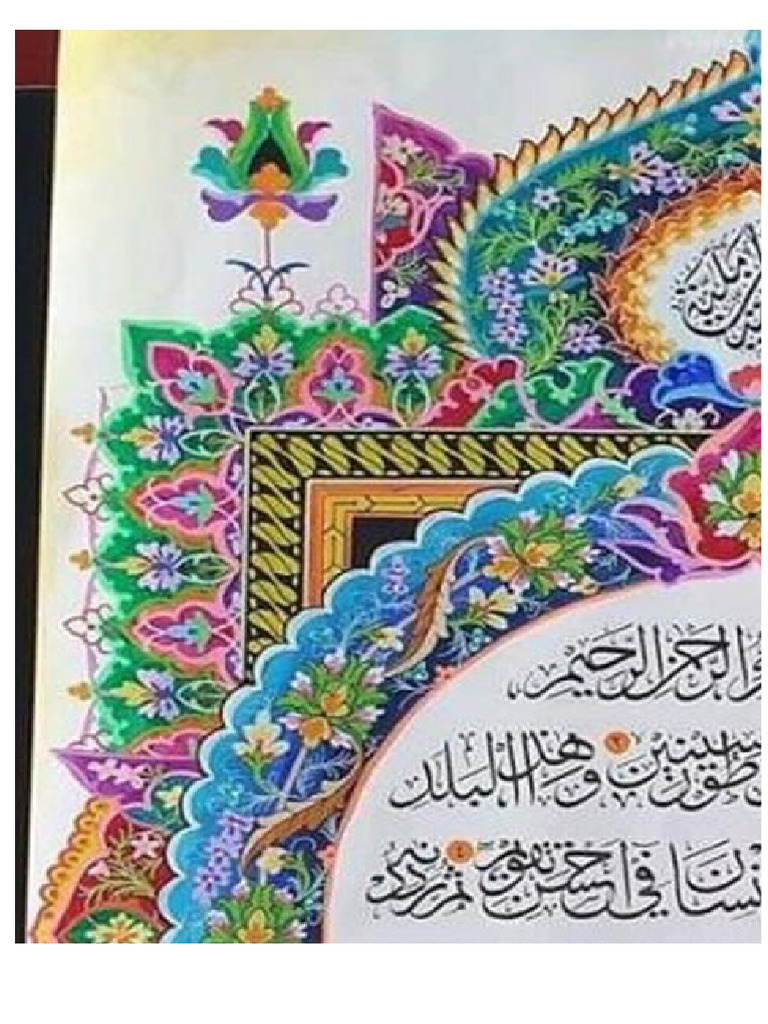 الرَّحمن الرَّحيم
طور سينين ٢ وهذا البلد
نسان في احسن تقويم ٤ ثم رددنه